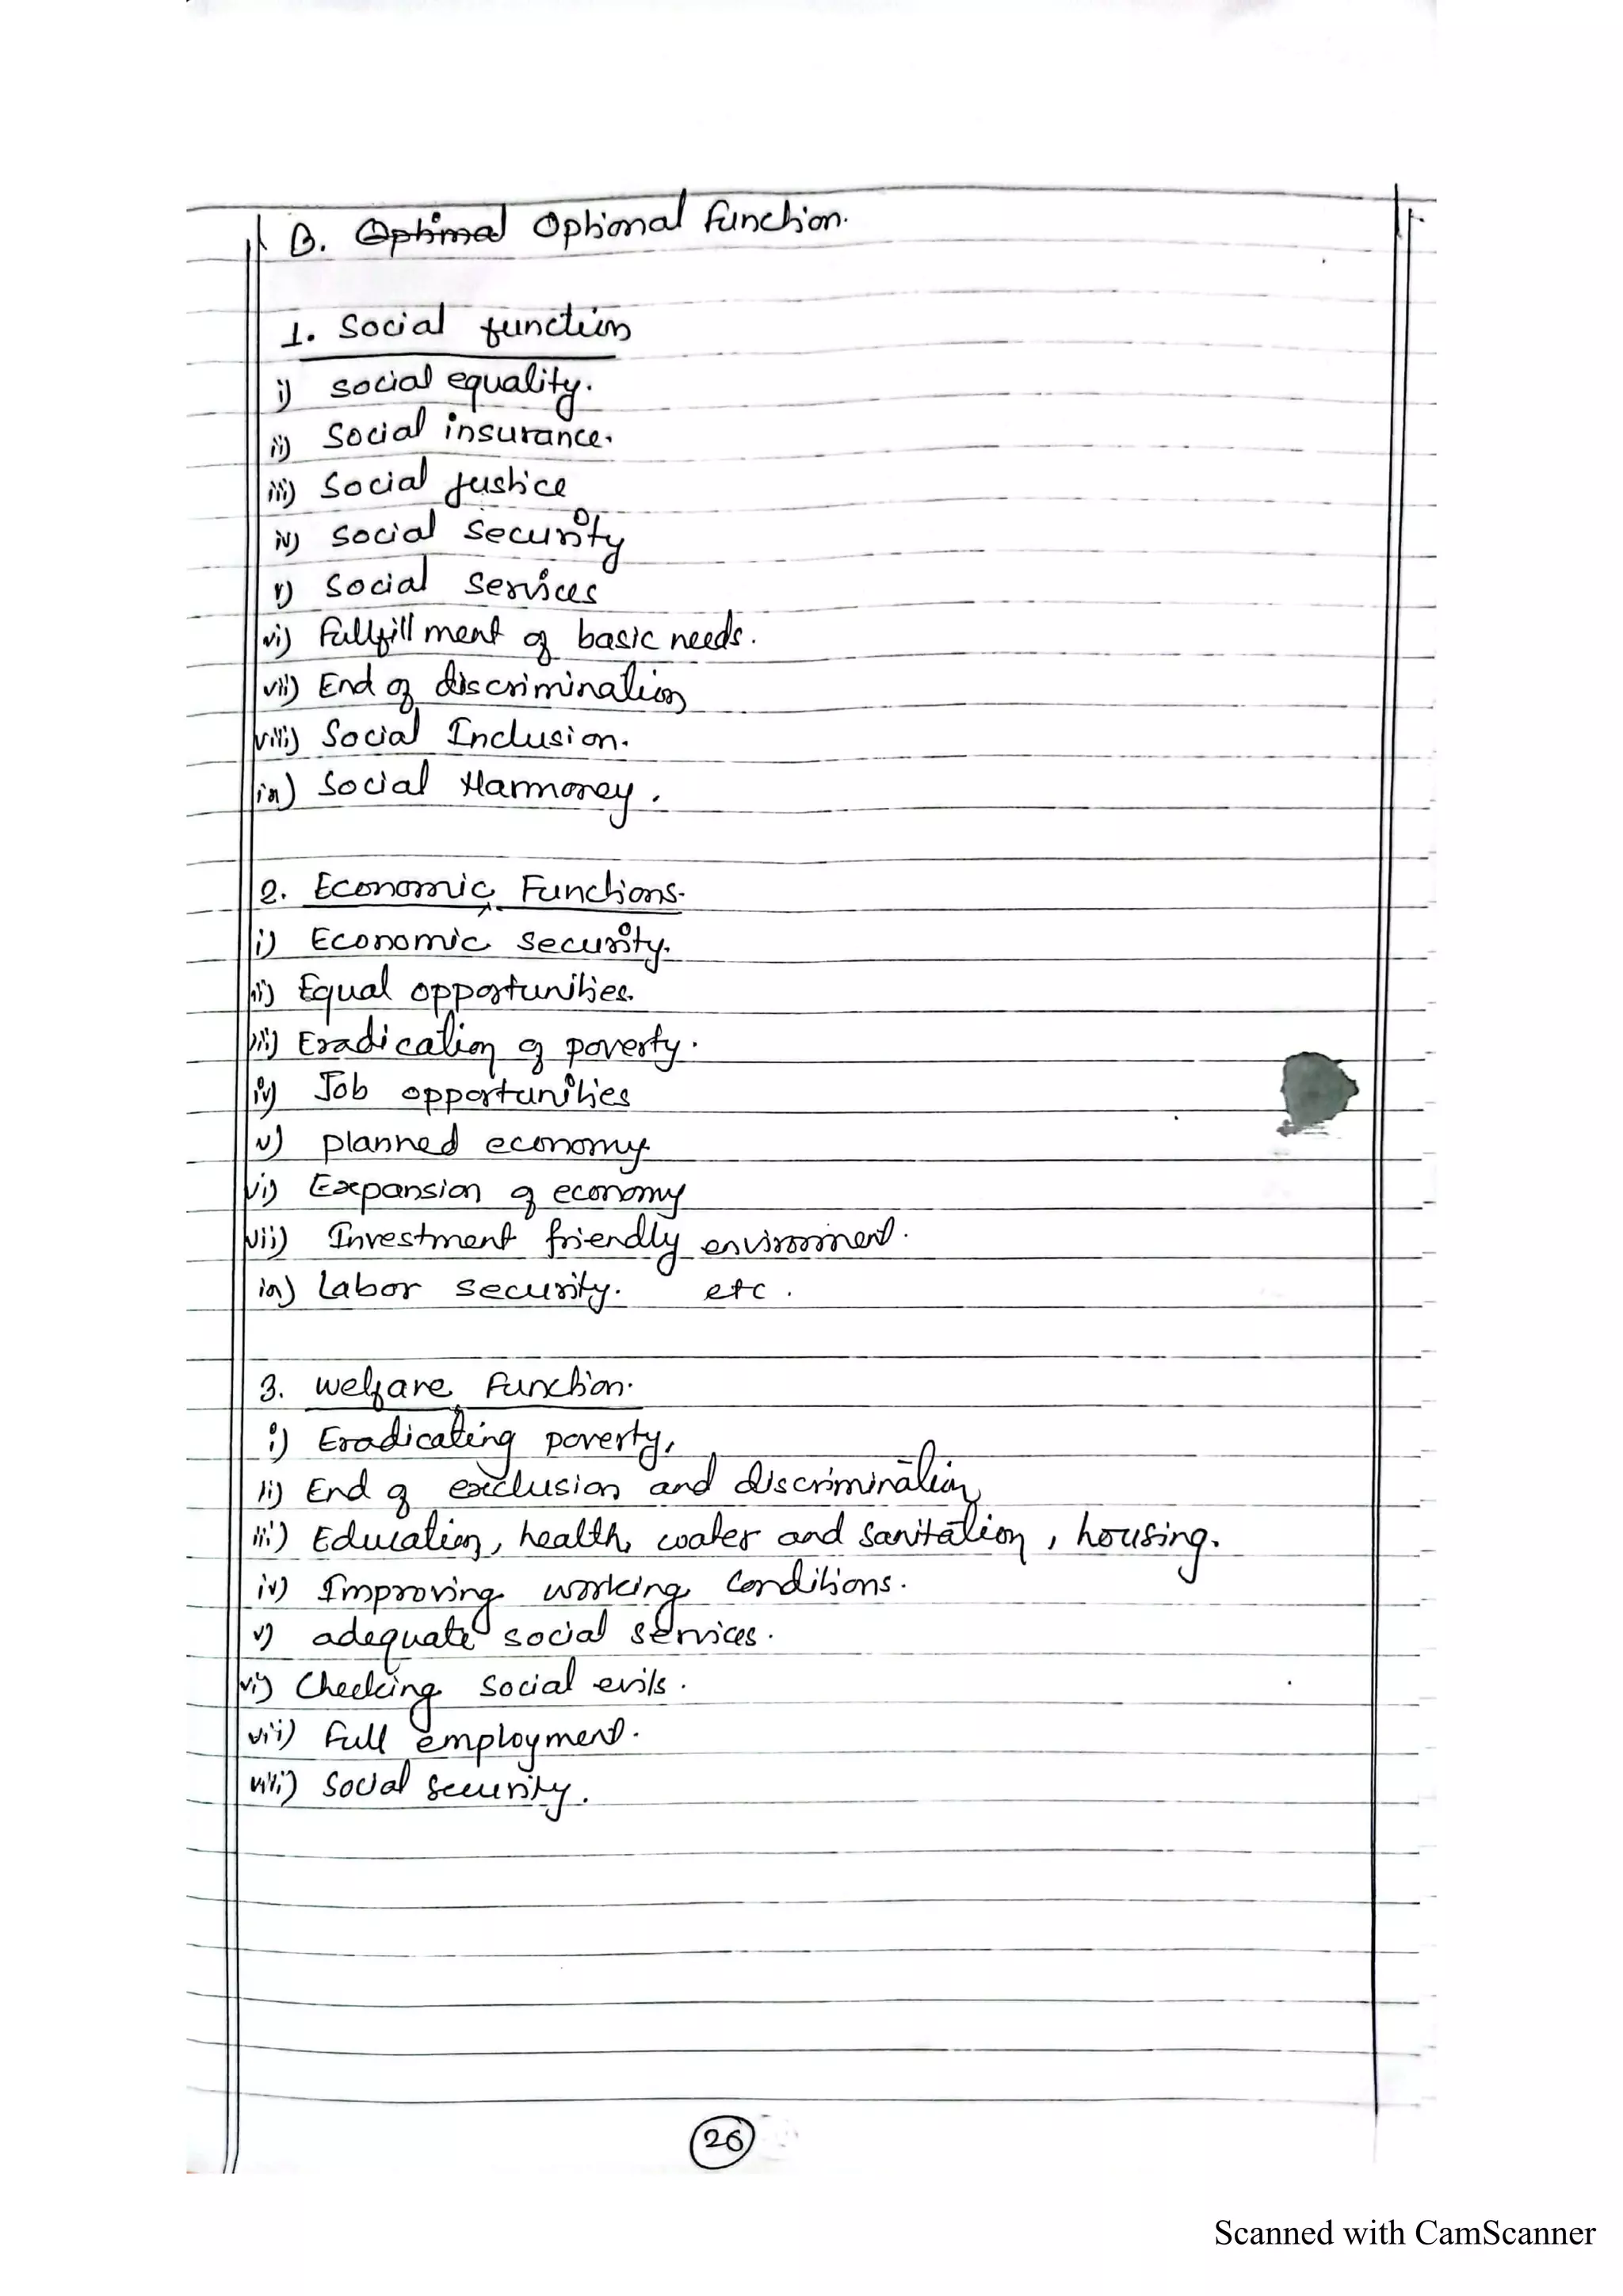 B. Optimal Optional Function.
1. Social function
i) social equality.
ii) Social insurance.
iii) Social justice
iv) Social Security
v) Social Services
vi) Fullfillment of basic needs.
vii) End of discrimination
viii) Social Inclusion.
ix) Social Harmoney.
2. Economic Functions.
i) Economic security.
ii) Equal opportunities.
iii) Eradication of poverty.
iv) Job opportunities
v) planned economy
vi) Expansion of economy
vii) Investment friendly environment.
ix) Labor security. etc.
3. Welfare Function.
i) Eradicating poverty,
ii) End of exclusion and discrimination
iii) Education, health, water and sanitation, housing.
iv) Improving working conditions.
v) adequate social services.
vi) Checking social evils.
vii) Full employment.
viii) Social Security.
26
Scanned with CamScanner